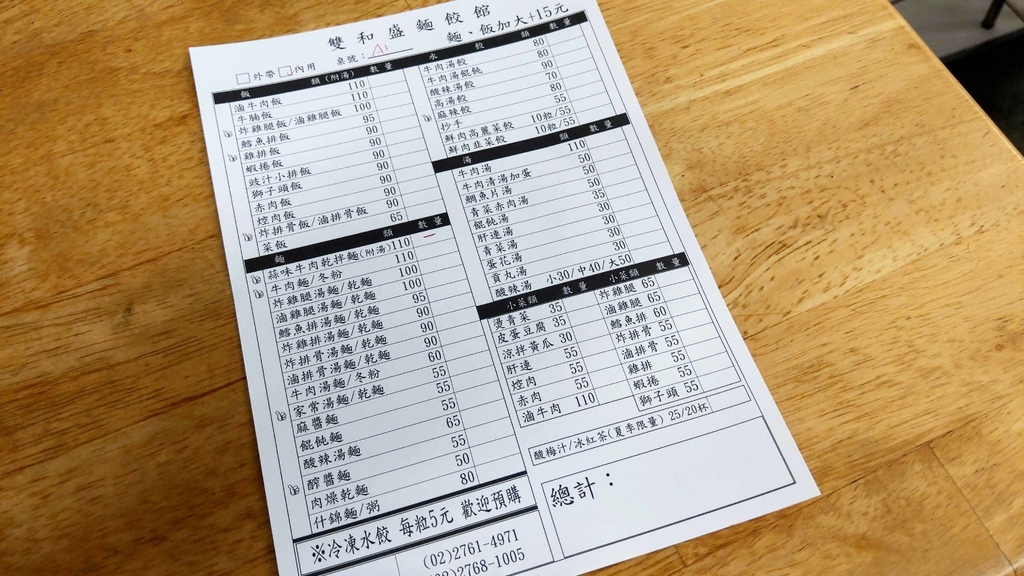 雙和盛麵餃館
□外帶□內用 桌號：A1 麵、飯加大+15元
飯 類(附湯) 數量
滷牛肉飯 110
牛腩飯 110
炸雞腿飯/滷雞腿飯 100
鱈魚排飯 95
雞排飯 90
蝦捲飯 90
豉汁小排飯 90
獅子頭飯 90
赤肉飯 90
焢肉飯 90
炸排骨飯/滷排骨飯 90
菜飯 65
麵 類 數量
蒜味牛肉乾拌麵(附湯) 110
牛肉麵/冬粉 110
炸雞腿湯麵/乾麵 100
滷雞腿湯麵/乾麵 100
鱈魚排湯麵/乾麵 95
炸雞排湯麵/乾麵 90
炸排骨湯麵/乾麵 90
滷排骨湯麵/乾麵 90
牛肉湯麵/冬粉 60
家常湯麵/乾麵 55
麻醬麵 55
餛飩麵 55
酸辣湯麵 65
醡醬麵 55
肉燥乾麵 50
什錦麵/粥 80
※冷凍水餃 每粒5元 歡迎預購
(02)2761-4971
(02)2768-1005
水 餃 類 數量
牛肉湯餃 80
牛肉湯餛飩 80
酸辣湯餃 90
高湯餃 70
麻辣餃 80
抄手 55
鮮肉高麗菜餃 10粒/55
鮮肉韭菜餃 10粒/55
湯 類 數量
牛肉湯 110
牛肉清湯加蛋 50
鯛魚片湯 50
青菜赤肉湯 50
餛飩湯 35
肝連湯 35
青菜湯 30
蛋花湯 30
貢丸湯 30
酸辣湯 小30/中40/大50
小菜類 數量 小菜類 數量
燙青菜 35 炸雞腿 65
皮蛋豆腐 35 滷雞腿 65
涼拌黃瓜 30 鱈魚排 60
肝連 55 炸排骨 55
焢肉 55 滷排骨 55
赤肉 55 雞排 55
滷牛肉 110 蝦捲 55
獅子頭 55
酸梅汁/冰紅茶(夏季限量) 25/20杯
總計：